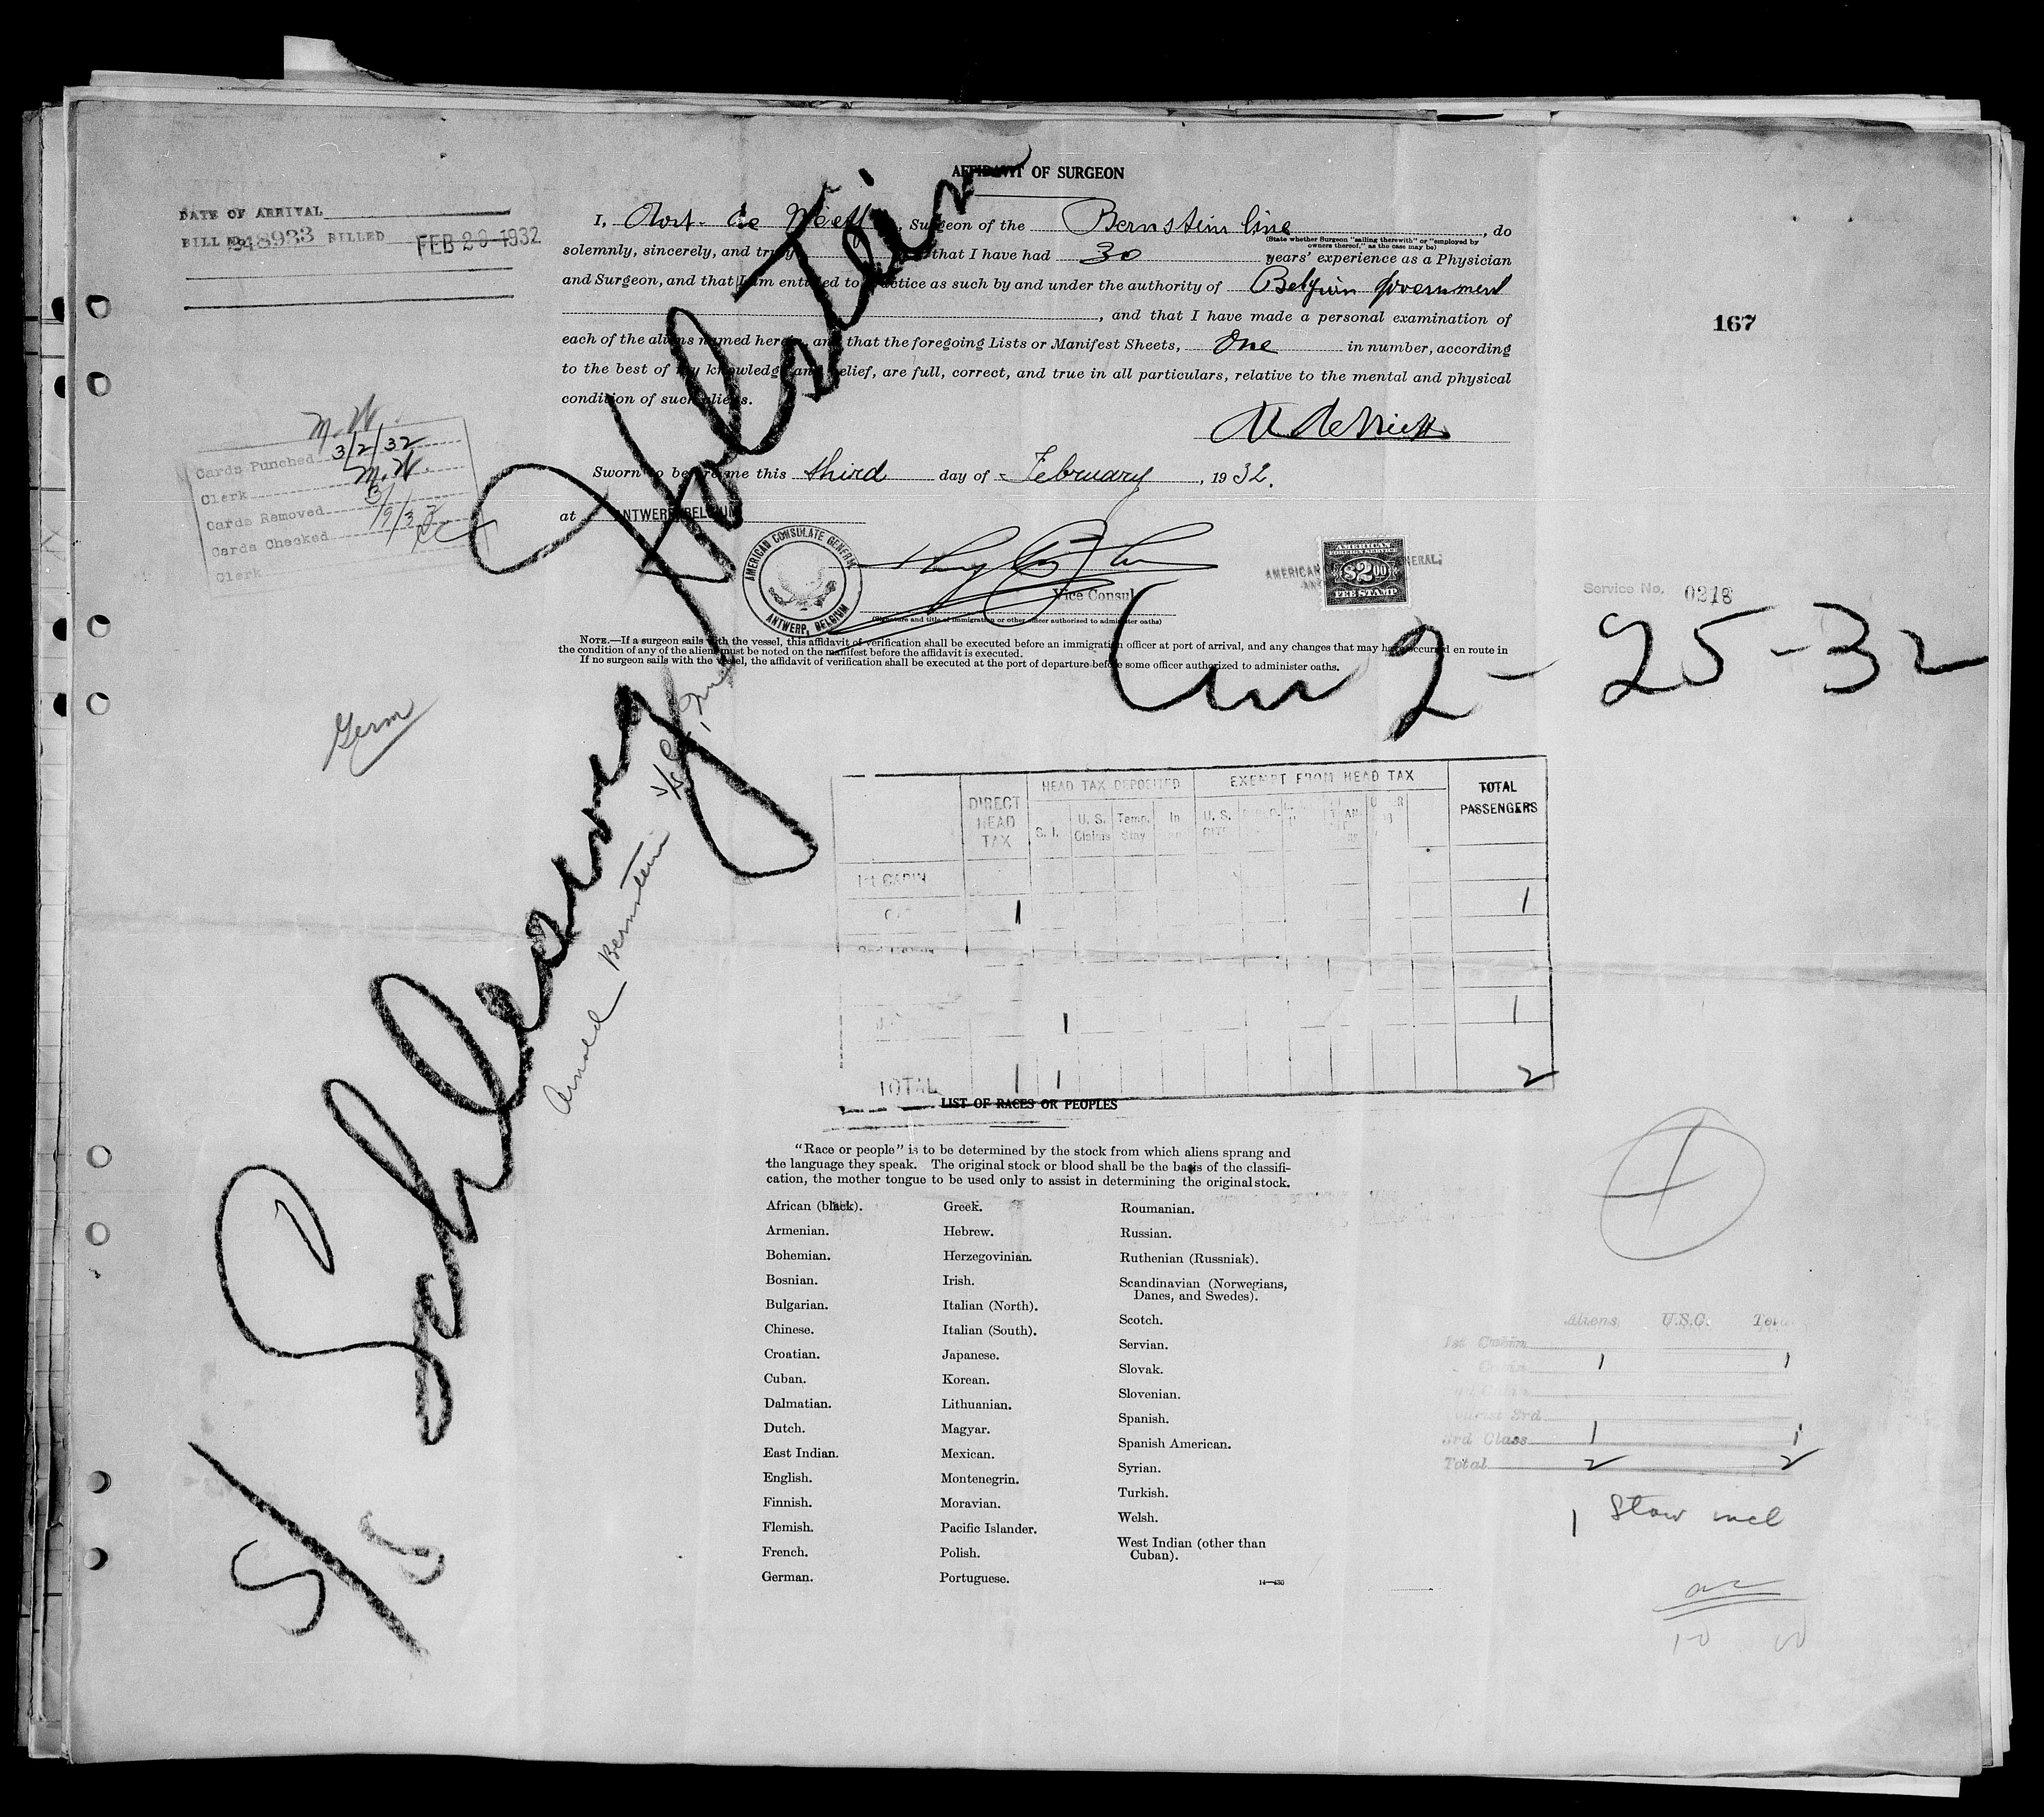 AFFIDAVIT OF SURGEON
DATE OF ARRIVAL
BILL No. 348933 BILLED FEB 20 1932
I, de , Surgeon of the Bernstein line , do
(State whether Surgeon "sailing therewith" or "employed by
owners thereof," as the case may be)
solemnly, sincerely, and truly that I have had 30 years' experience as a Physician
and Surgeon, and that I am entitled to practice as such by and under the authority of Belgian Government
, and that I have made a personal examination of
each of the aliens named herein, and that the foregoing Lists or Manifest Sheets, One in number, according
to the best of my knowledge and belief, are full, correct, and true in all particulars, relative to the mental and physical
condition of such aliens.
167
M. W.
Cards Punched 3/2/32
Clerk M. W.
Cards Removed 3/
Cards Checked /9/32
Clerk
Sworn to before me this third day of February , 1932.
at ANTWERP, BELGIUM
AMERICAN CONSULATE GENERAL
ANTWERP, BELGIUM
Vice Consul
(Signature and title of immigration or other officer authorized to administer oaths)
AMERICAN
FOREIGN SERVICE
$2.00
FEE STAMP
AMERICAN GENERAL,
Service No. 0218
NOTE.—If a surgeon sails with the vessel, this affidavit of verification shall be executed before an immigration officer at port of arrival, and any changes that may have occurred en route in
the condition of any of the aliens must be noted on the manifest before the affidavit is executed.
If no surgeon sails with the vessel, the affidavit of verification shall be executed at the port of departure before some officer authorized to administer oaths.
2-25-32
Germ
S/S Schleswig Holstein
Arnold Bernstein
DIRECT HEAD TAX
HEAD TAX DEPOSITED
EXEMPT FROM HEAD TAX
TOTAL PASSENGERS
S. I. U. S. Claims Temp. Stay In U. S.
1st CABIN
1 1
1 1
TOTAL 1 1 2
LIST OF RACES OR PEOPLES
"Race or people" is to be determined by the stock from which aliens sprang and
the language they speak. The original stock or blood shall be the basis of the classifi-
cation, the mother tongue to be used only to assist in determining the original stock.
African (black).
Armenian.
Bohemian.
Bosnian.
Bulgarian.
Chinese.
Croatian.
Cuban.
Dalmatian.
Dutch.
East Indian.
English.
Finnish.
Flemish.
French.
German.
Greek.
Hebrew.
Herzegovinian.
Irish.
Italian (North).
Italian (South).
Japanese.
Korean.
Lithuanian.
Magyar.
Mexican.
Montenegrin.
Moravian.
Pacific Islander.
Polish.
Portuguese.
Roumanian.
Russian.
Ruthenian (Russniak).
Scandinavian (Norwegians,
Danes, and Swedes).
Scotch.
Servian.
Slovak.
Slovenian.
Spanish.
Spanish American.
Syrian.
Turkish.
Welsh.
West Indian (other than
Cuban).
14—430
Aliens U.S.C. Total
1st Cabin
Cabin 1 1
3rd
3rd Class 1 1
Total 2 2
1 Stow incl